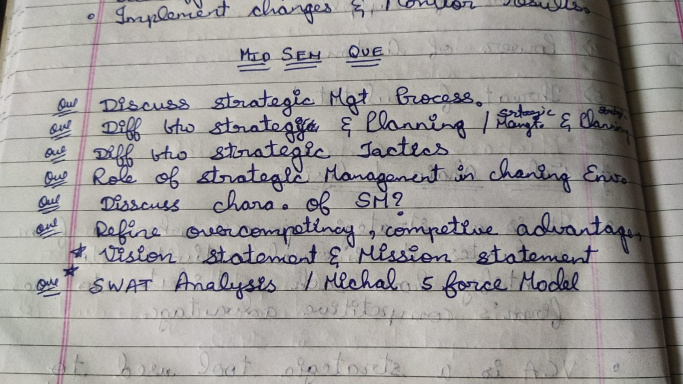 • Implement changes & Monitor Results.
MID SEM QUE
Que Discuss strategic Mgt Process.
Que Diff btw strategic & Planning / Mangt. & Planning
Que Diff btw strategic Tactics
Que Role of strategic Management in chaning Env.
Que Disscuss chara. of SM?
Que Refine overcompetincy, competive advantage,
* Vision statement & Mission statement
Que * SWAT Analysis / Michal 5 force Model